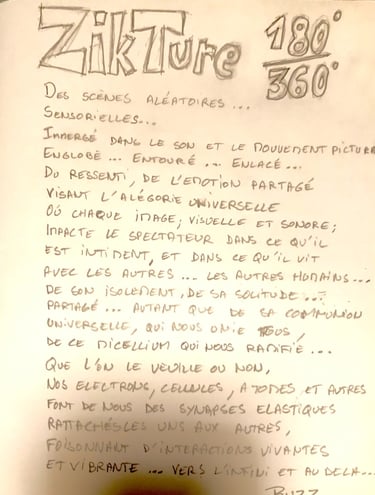 ZikTure 180°
360°
DES SCÈNES ALÉATOIRES...
SENSORIELLES...
IMMERGÉ DANS LE SON ET LE MOUVEMENT PICTURA
ENGLOBÉ... ENTOURÉ... ENLACÉ...
DU RESSENTI, DE L'EMOTION PARTAGÉ
VISANT L'ALÉGORIE UNIVERSELLE
OÙ CHAQUE IMAGE, VISUELLE ET SONORE;
IMPACTE LE SPECTATEUR DANS CE QU'IL
EST INTIMENT, ET DANS CE QU'IL VIT
AVEC LES AUTRES... LES AUTRES HUMAINS...
DE SON ISOLEMENT, DE SA SOLITUDE...
PARTAGÉ... AUTANT QUE DE SA COMMUNION
UNIVERSELLE, QUI NOUS UNIE TOUS,
DE CE MICELLIUM QUI NOUS RAMIFIE...
QUE L'ON LE VEUILLE OU NON,
NOS ELECTRONS, CELLULES, ATOMES, ET AUTRES
FONT DE NOUS DES SYNAPSES ELASTIQUES
RATTACHÉS LES UNS AUX AUTRES,
FOISONNANT D'INTERACTIONS VIVANTES
ET VIBRANTE... VERS L'INFINI ET AU DELA...
BUZZ